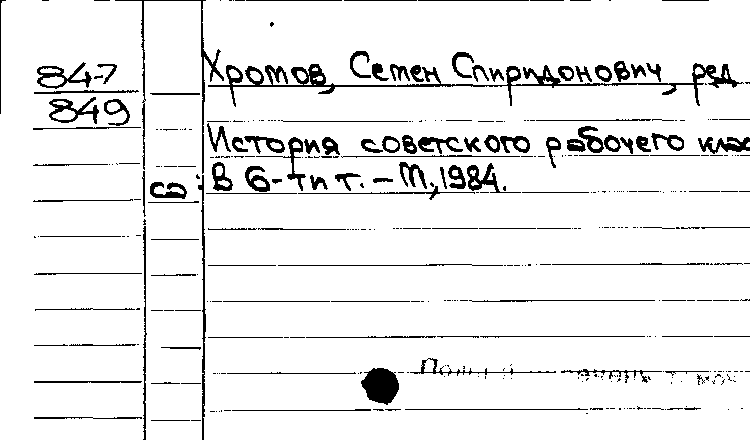 84-7
Хромов, Семен Спиридонович, ред
849
История советского рабочего клас
В 6-ти т. - М., 1984.